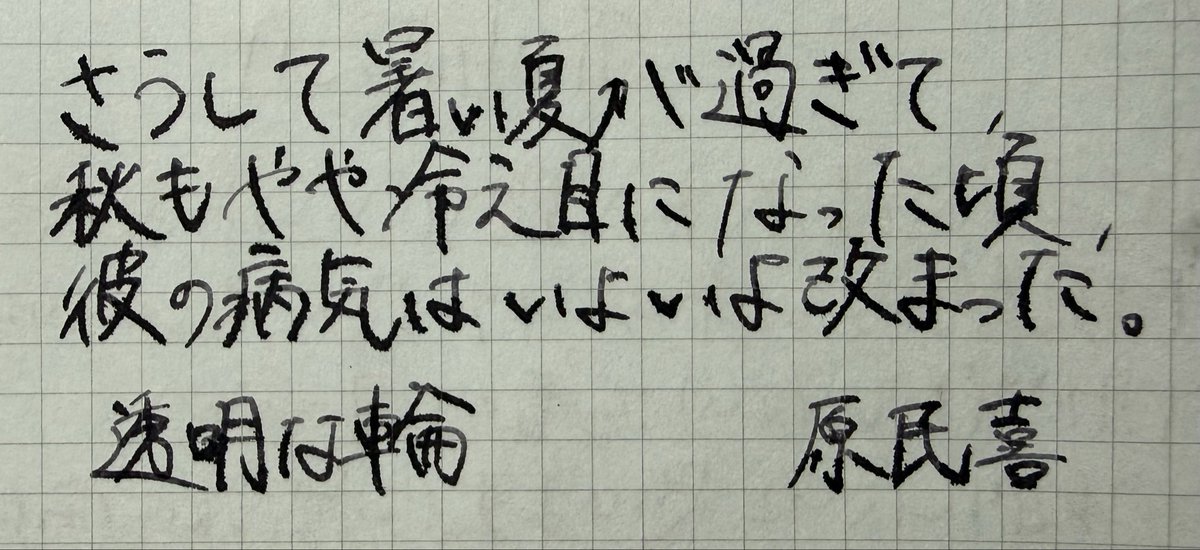 さうして暑い夏が過ぎて、
秋もやや冷え目になった頃、
彼の病気はいよいよ改まった。
透明な輪 原民喜